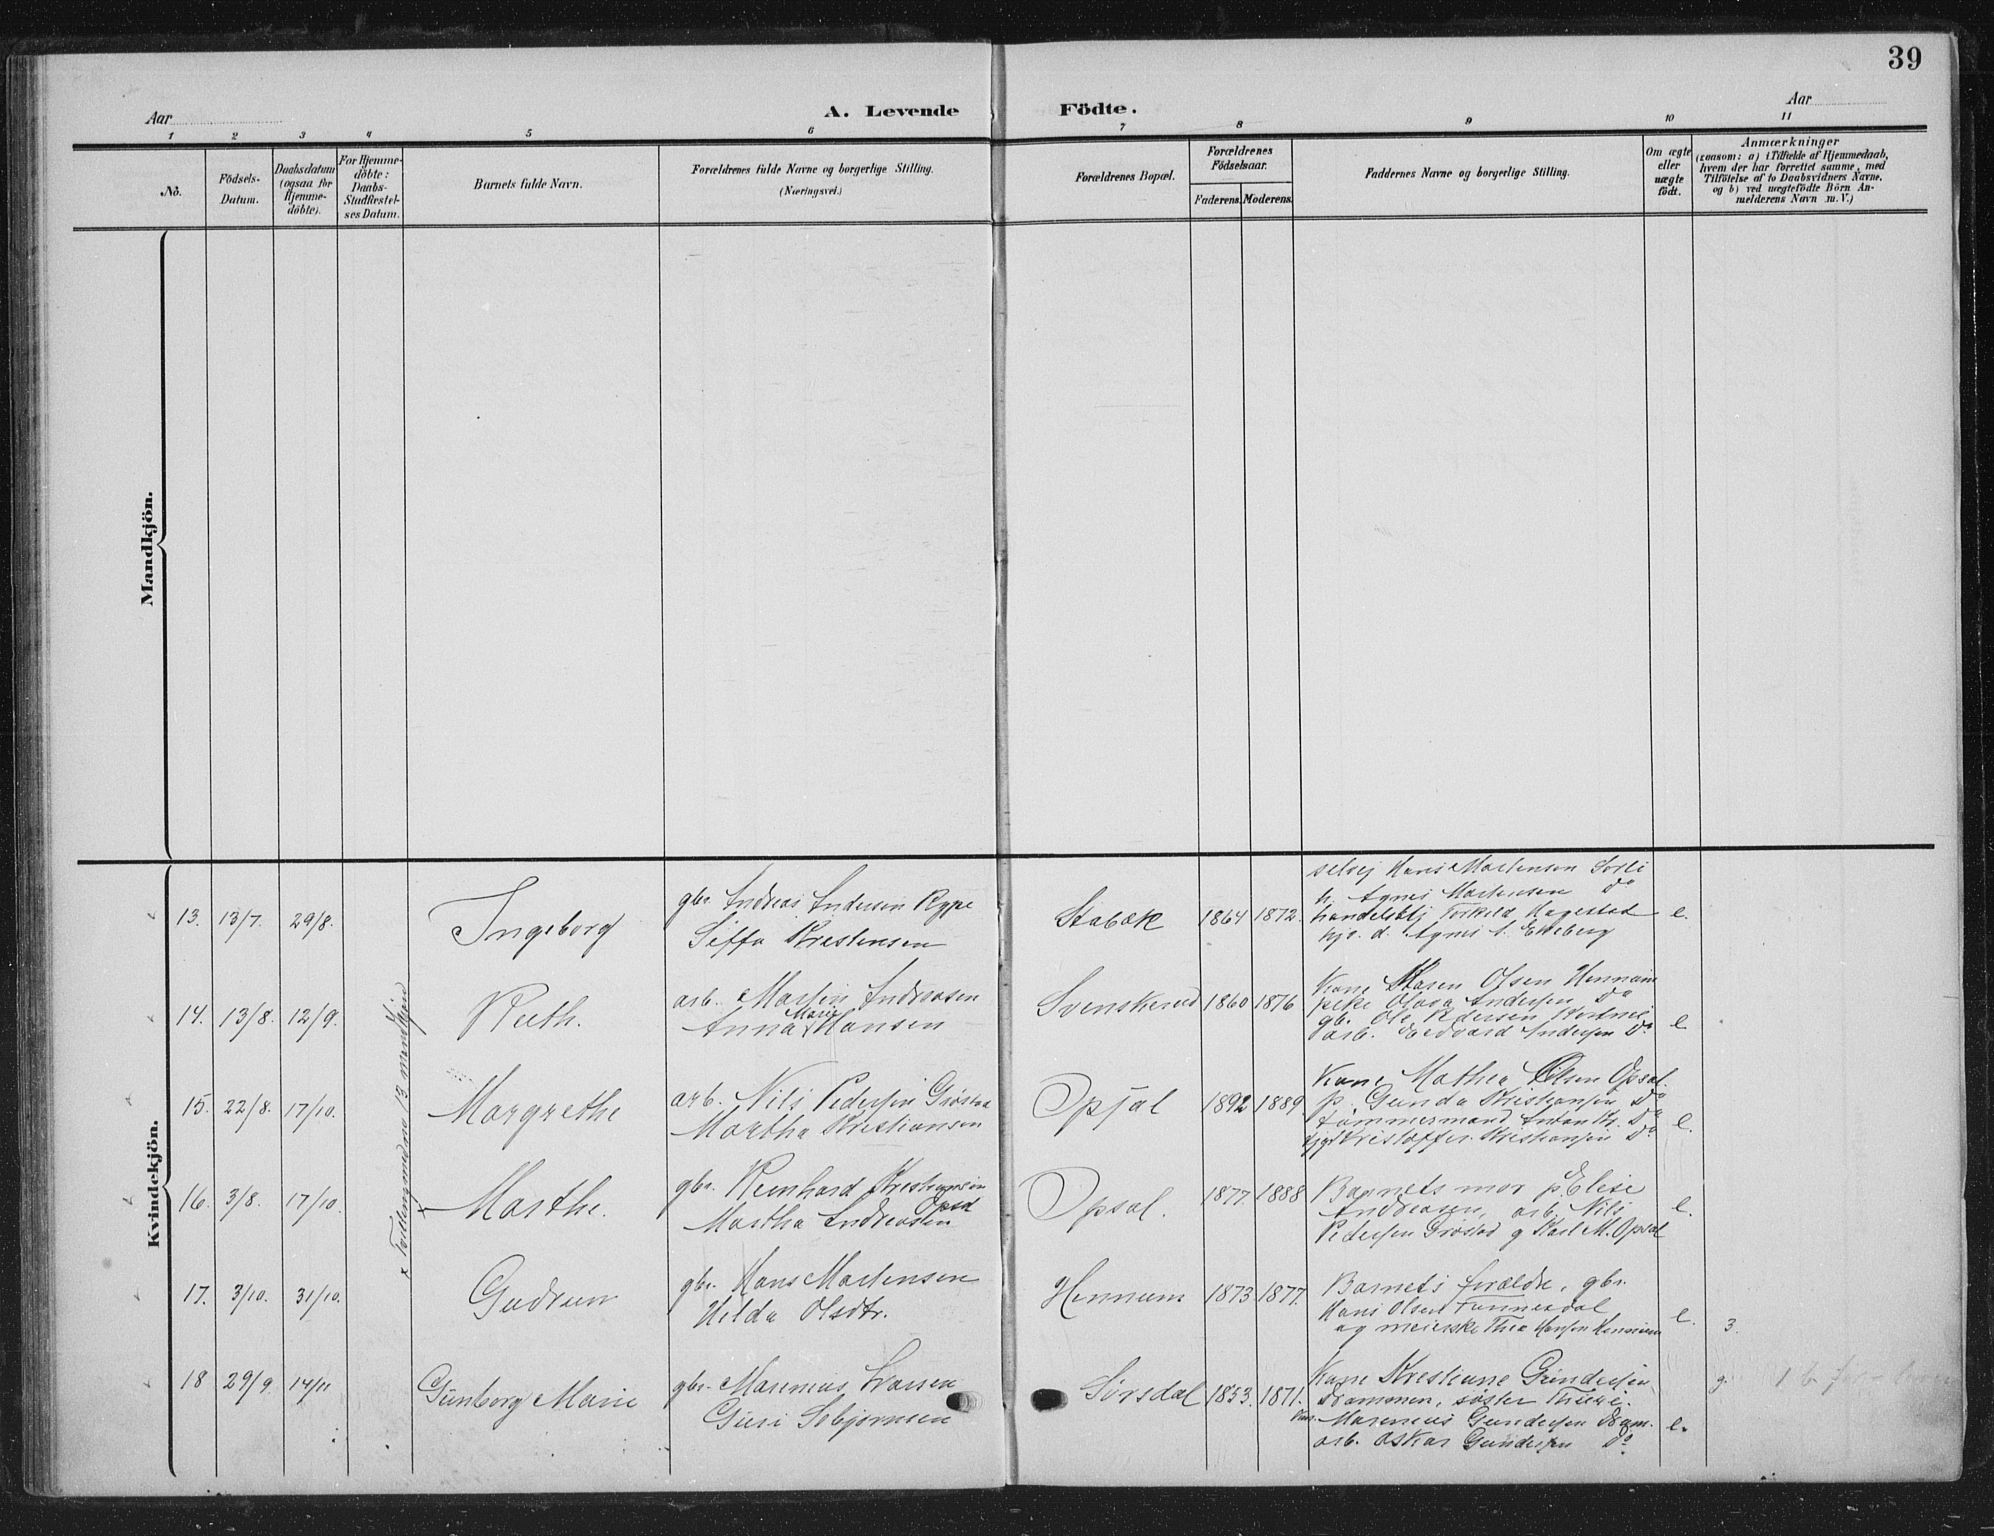 39
Aar
A. Levende Födte.
Aar
1 2 3 4 5 6 7 8 9 10 11
No.
Födsels-Datum.
Daabsdatum (ogsaa for Hjemme-döbte).
For Hjemme-döbte: Daabs-Stadfæstel-ses Datum.
Barnets fulde Navn.
Forældrenes fulde Navne og borgerlige Stilling.
(Næringsvei.)
Forældrenes Bopæl.
Forældrenes Födselsaar.
Faderens. Moderens.
Faddernes Navne og borgerlige Stilling.
Om ægte eller uægte födt.
Anmærkninger
(saasom: a) i Tilfælde af Hjemmedaab,
hvem der har forrettet samme, med
Tilföielse af to Daabsvidners Navne,
og b) ved uægtefödte Börn An-
melderens Navn m. V.)
Mandkjön.
Kvindekjön.
13. 13/7. 29/8. Ingeborg
gbr. Andreas Andersen Rype
Kristensen
Stabæk 1864 1872.
selvej Hans Martensen
h. Agnes Martensen do
Torkild Hagestad
d. Agnes Ekeberg
e.
14. 13/8. 12/9. Ruth.
arb. Martin Andreasen
Anna Marie Hansen
Svenskerud 1860 1876
Kone Maren Olsen Hennum
pike Olava Andersen do
gb. Ole Pedersen
arb. Edvard Andersen do
e
15. 22/8. 17/10. Margrethe
arb. Nils Pedersen Grøstad
Martha Kristiansen
Opsal 1892 1889
Kone Mathea Olsen Opsal.
p. Gunda Kristiansen do
tømmermand Anton Kr. do
Kristoffer Kristiansen do
e.
x Tvilling med no 13 mandkjøn
16. 3/8. 17/10. x Marthe.
gbr. Reinhard Kristiansen
Opsal
Martha Andreasen
Opsal. 1877. 1888
Barnets mor p. Elise
Andreasen, arb. Nils
Pedersen Grøstad g Karl M. Opsal
e.
17. 3/10. 31/10. Gudrun
gbr. Hans Martensen
Hilda Olsdtr.
Hennum 1873 1877.
Barnets forældre, gbr.
Hans Olsen
og meierske Thea Hansen Hennum
e. 3.
18 29/9 14/11 Gunborg Marie
gbr. Marenius Larsen
Guri Sebjørnsen
Sørsdal 1853. 1871.
Kone Kristiane Gundersen
Drammen, søster
Marenius Gundersen Dram.
arb. Oskar Gundersen do
e. g.